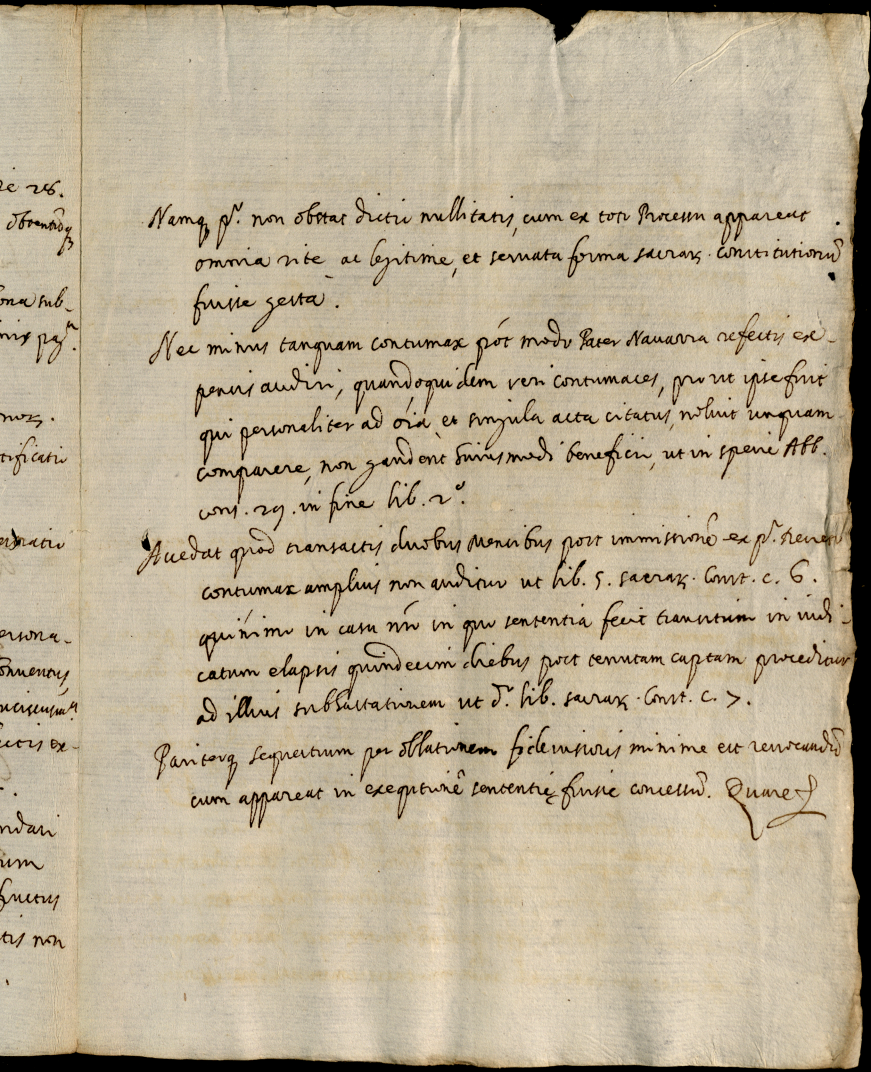 re 28.
obtentoq3
ona sub-
nis pag.
nor3.
tificati
ersona-
onventus
ictis ex-
ndari
um
fructus
tis non
Namq3 p.r non obstat dictu nullitatis, cum ex toto Processu appareat
omnia rite ac legitime, et servata forma sacrar3. constitutionū
fuisse gesta.
Nec minus tanquam contumax pót modo Pater Navarra refectis ex-
pensis audiri, quandoquidem veri contumaces, prout ipse fuit
qui personaliter ad oīa et singula acta citatus, noluit unquam
comparere, non gaudent huiusmodi beneficio, ut in specie Abb.
cons. 29. in fine lib. 2.º
Accedat quod transactis duobus mensibus post immissionē ex p.º
contumax amplius non auditur ut lib. 5. sacrar3. Const. c. 6.
quinimo in casu nrō in quo sententia fecit transitum in iudi-
catum elapsis quindecim diebus post tenutam captam proceditur
ad illius subhastationem ut d.º lib. sacrar3. Const. c. 7.
Pariterq3 sequestrum per oblationem fideiussoris minime est revocandū
cum appareat in exequtionē sententię fuisse concessū. Quare &